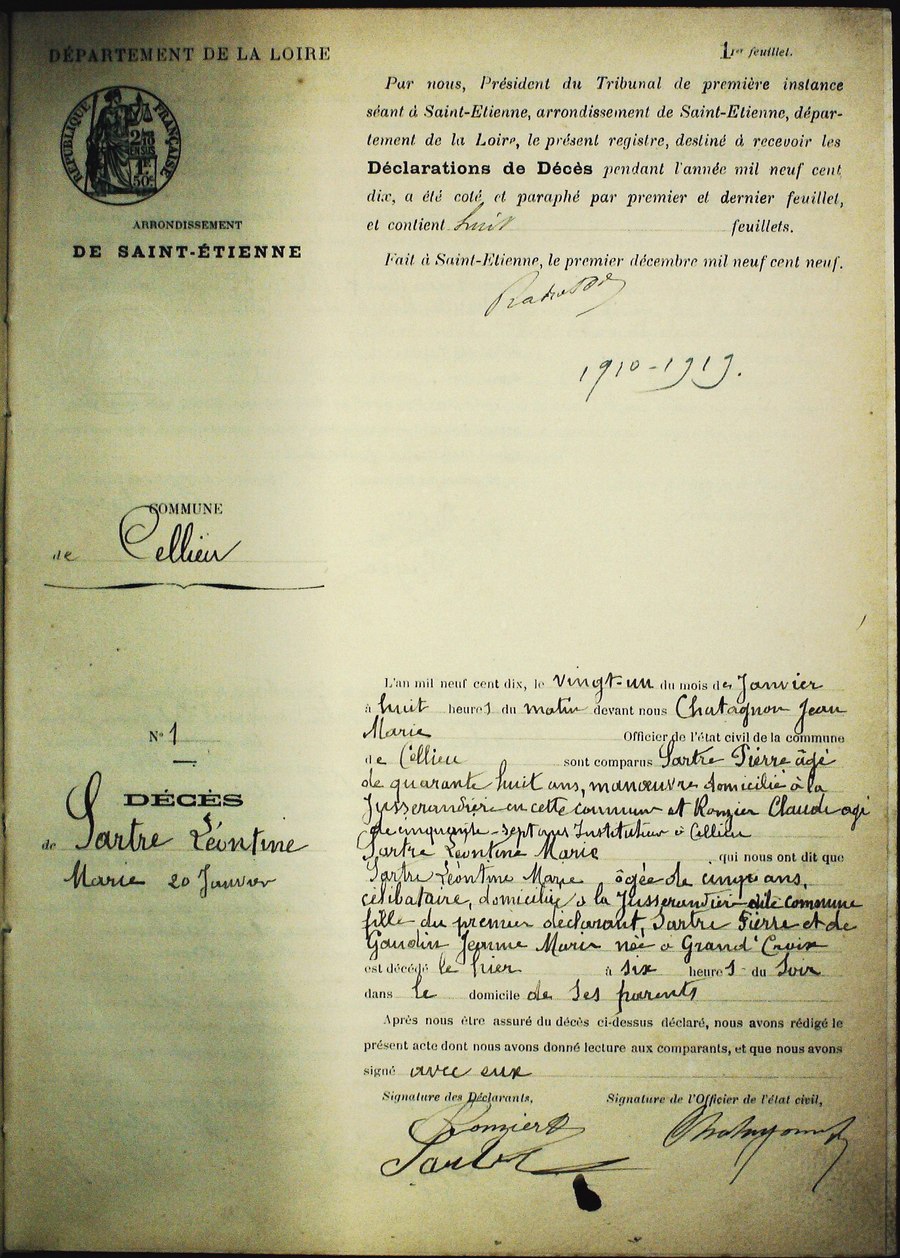 DÉPARTEMENT DE LA LOIRE
1 1er feuillet.
RÉPUBLIQUE FRANÇAISE
Par nous, Président du Tribunal de première instance
séant à Saint-Etienne, arrondissement de Saint-Etienne, dépar-
tement de la Loire, le présent registre, destiné à recevoir les
Déclarations de Décès pendant l'année mil neuf cent
dix, a été coté et paraphé par premier et dernier feuillet,
et contient huit feuillets.
Fait à Saint-Etienne, le premier décembre mil neuf cent neuf.
ARRONDISSEMENT
DE SAINT-ÉTIENNE
1910-1919.
COMMUNE
de Cellieu
N° 1
DÉCÈS
de Sartre Léontine
Marie 20 Janvier
L'an mil neuf cent dix, le vingt-un du mois de Janvier
à huit heures du matin devant nous Chatagnon Jean
Marie Officier de l'état civil de la commune
de Cellieu sont comparus Sartre Pierre âgé
de quarante huit ans, manœuvre domicilié à la
Jusserandière en cette commune et Ronzier Claude agé
de cinquante-sept ans Instituteur à Cellieu
Sartre Léontine Marie qui nous ont dit que
Sartre Léontine Marie âgée de cinq ans,
célibataire, domiciliée à la Jusserandière dite commune
fille du premier déclarant, Sartre Pierre et de
Gaudin Jeanne Marie née à Grand'Croix
est décédé le hier à six heures du soir
dans le domicile de ses parents
Après nous être assuré du décès ci-dessus déclaré, nous avons rédigé le
présent acte dont nous avons donné lecture aux comparants, et que nous avons
signé avec eux
Signature des Déclarants,
Signature de l'Officier de l'état civil,
Ronzier
Sartre